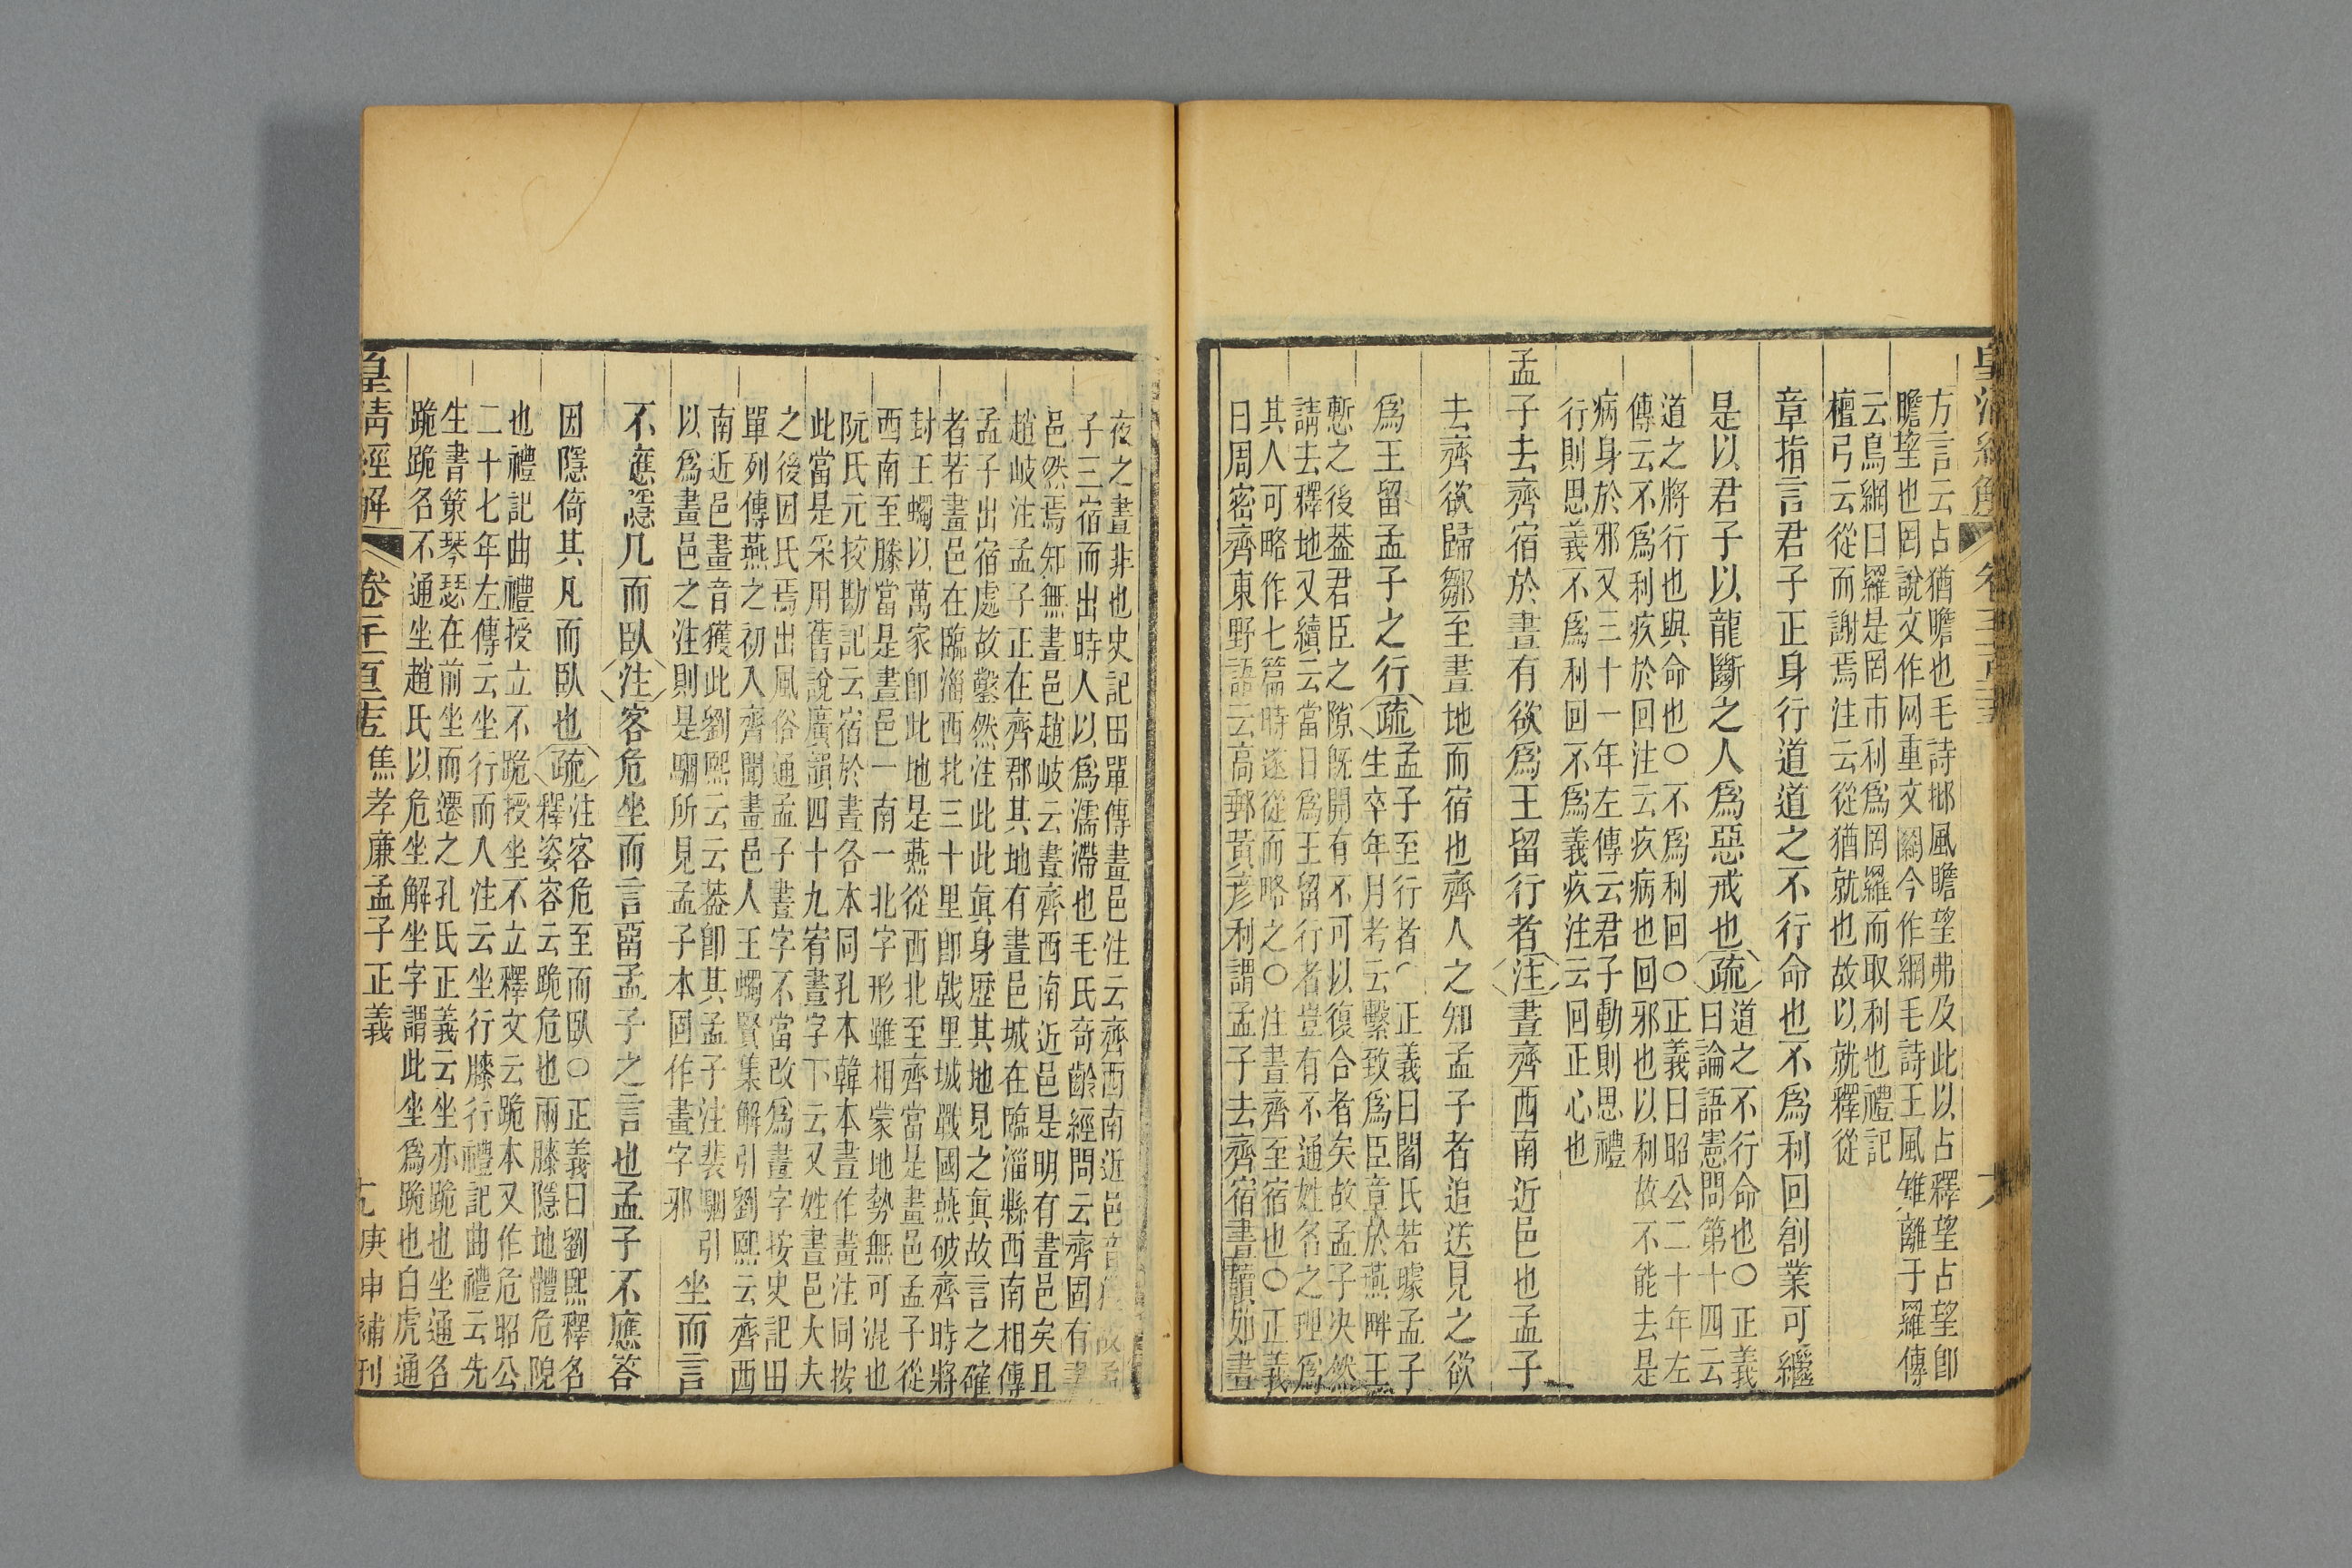 方言云占猶瞻也毛詩邶風瞻望弗及此以占釋望占望卽
瞻望也罔說文作网重文䋄今作網毛詩王風雉離于羅傳
云鳥網曰羅是罔市利爲罔羅而取利也禮記
檀弓云從而謝焉注云從猶就也故以就釋從
章指言君子正身行道道之不行命也不爲利回創業可繼
是以君子以龍斷之人爲惡戒也疏
道之不行命也〇正義
曰論語憲問第十四云
道之將行也與命也〇不爲利回〇正義曰昭公二十年左
傳云不爲利疚於回注云疚病也回邪也以利故不能去是
病身於邪又三十一年左傳云君子動則思禮
行則思義不爲利回不爲義疚注云回正心也
孟子去齊宿於晝有欲爲王留行者注晝齊西南近邑也孟子
去齊欲歸鄒至晝地而宿也齊人之知孟子者追送見之欲
爲王留孟子之行疏
孟子至行者〇正義曰閻氏若璩孟子
生卒年月考云繫致爲臣章於燕畔王
慙之後葢君臣之隙旣開有不可以復合者矣故孟子決然
請去釋地又續云當日爲王留行者豈有不通姓名之理爲
其人可略作七篇時遂從而略之〇注晝齊至宿也〇正義
曰周密齊東野語云高郵黃彥利謂孟子去齊宿晝讀如晝
夜之晝非也史記田單傳畫邑注云齊西南近邑音獲故孟
子三宿而出時人以爲濡滯也毛氏奇齡經問云齊固有晝
邑然焉知無晝邑趙岐云晝齊西南近邑是明有晝邑矣且
趙岐注孟子正在齊郡其地有晝邑城在臨淄縣西南相傳
孟子出宿處故鑿然注此此眞身歷其地見之眞故言之確
者若畫邑在臨淄西北三十里卽戟里城戰國燕破齊時將
封王蠋以萬家卽此地是燕從西北至齊當是畫邑孟子從
西南至滕當是晝邑一南一北字形雖相蒙地勢無可混也
阮氏元挍勘記云宿於晝各本同孔本韓本晝作畫注同按
此當是采用舊說廣韻四十九宥晝字下云又姓晝邑大夫
之後因氏焉出風俗通孟子晝字不當改爲畫字按史記田
單列傳燕之初入齊聞畫邑人王蠋賢集解引劉熙云齊西
南近邑畫音獲此劉熙云云葢卽其孟子注裴駰引
以爲畫邑之注則是駰所見孟子本固作畫字邪
坐而言
不應隱几而臥注客危坐而言留孟子之言也孟子不應答
因隱倚其凡而臥也疏
注客危至而臥〇正義曰劉熙釋名
釋姿容云跪危也兩膝隱地體危隉
也禮記曲禮授立不跪授坐不立釋文云跪本又作危昭公
二十七年左傳云坐行而入注云坐行膝行禮記曲禮云先
生書策琴瑟在前坐而遷之孔氏正義云坐亦跪也坐通名
跪跪名不通坐趙氏以危坐解坐字謂此坐爲跪也白虎通
皇淸經解
焦孝廉孟子正義
庚申補刊